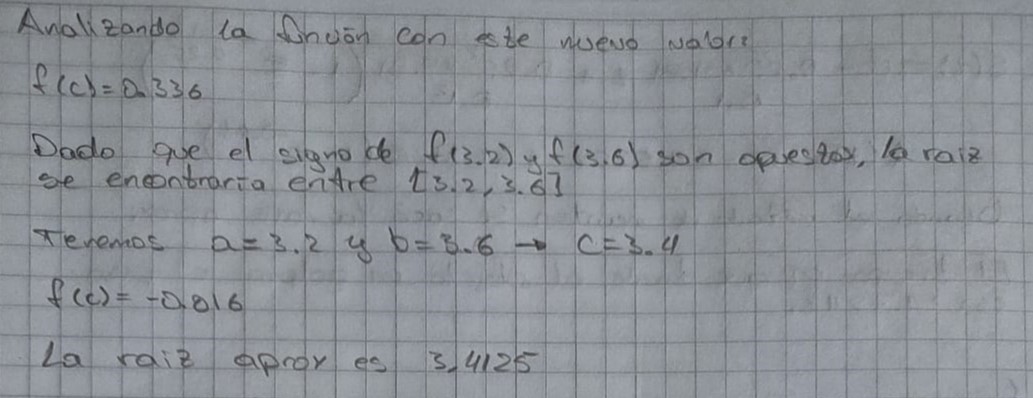 Analizando la función con este nuevo valor:
f(c)=0.336
Dado que el signo de f(3.2) y f(3.6) son opuestos, la raiz
se encontraria entre [3.2, 3.6]
Tenemos a=3.2 y b=3.6 → c=3.4
f(c)=-0.016
La raiz aprox es 3,4125